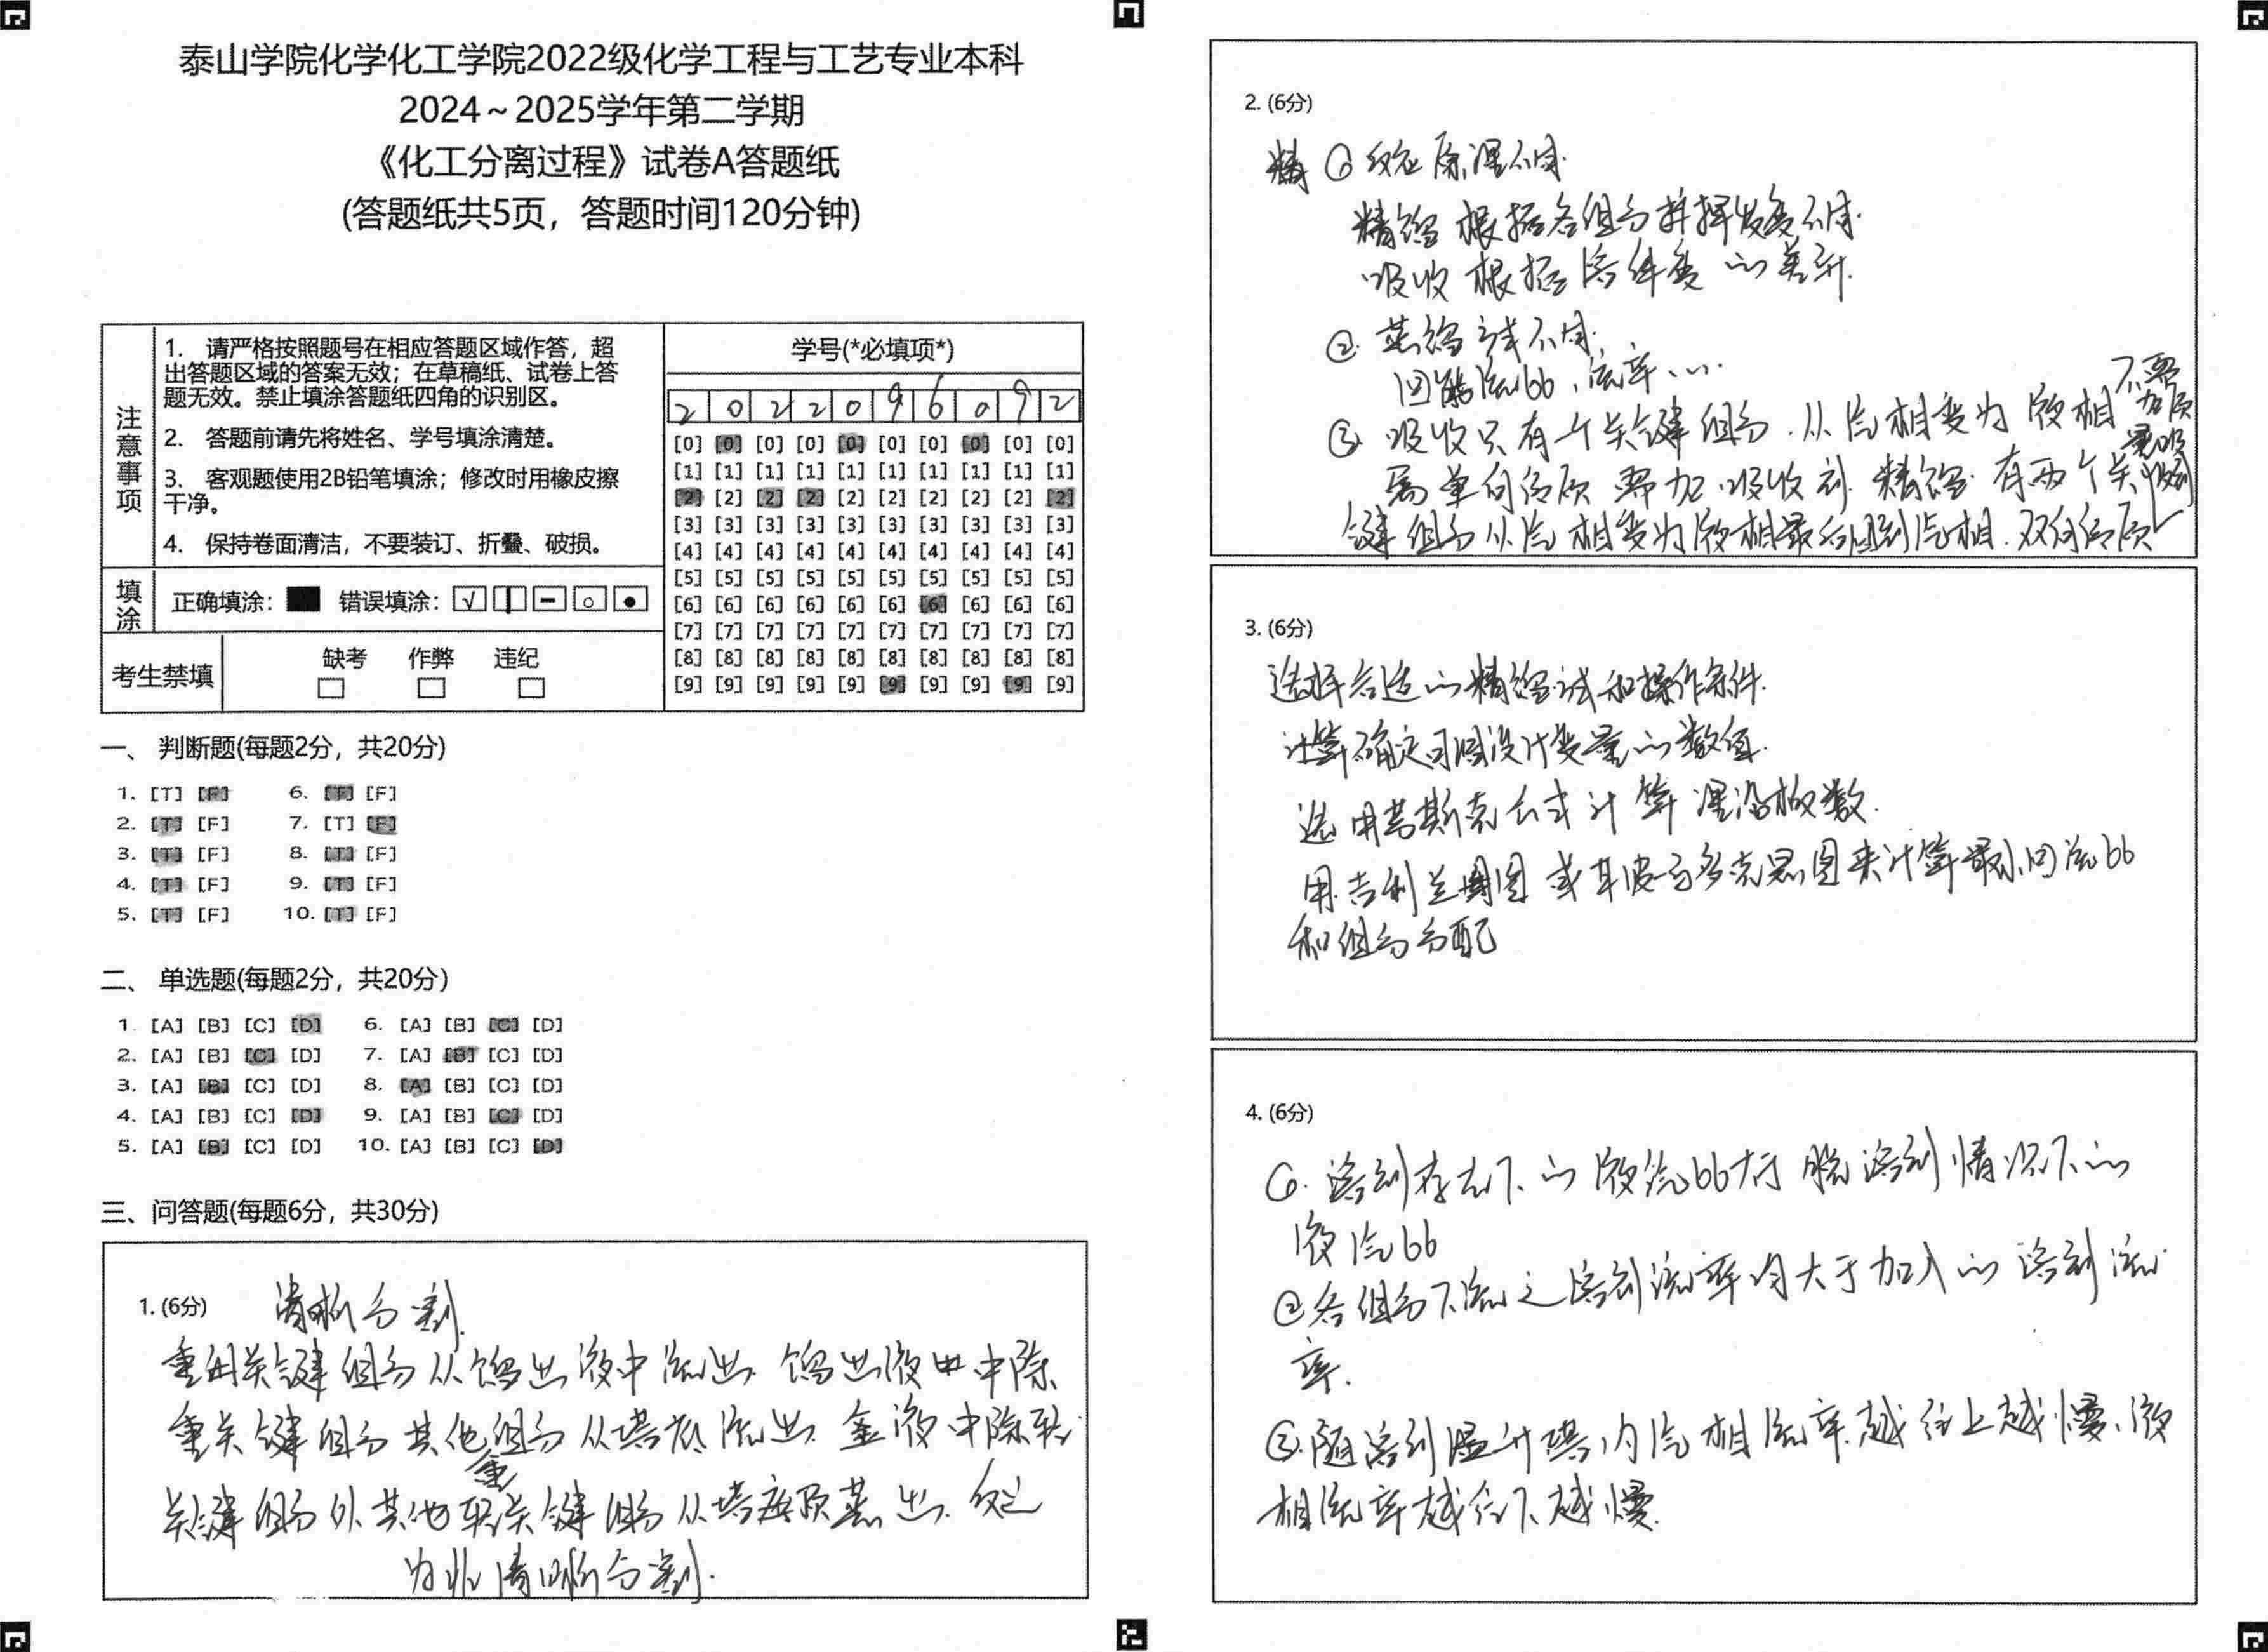 泰山学院化学化工学院2022级化学工程与工艺专业本科
2024～2025学年第二学期
《化工分离过程》试卷A答题纸
(答题纸共5页，答题时间120分钟)
注意事项
1. 请严格按照题号在相应答题区域作答，超
出答题区域的答案无效；在草稿纸、试卷上答
题无效。禁止填涂答题纸四角的识别区。
2. 答题前请先将姓名、学号填涂清楚。
3. 客观题使用2B铅笔填涂；修改时用橡皮擦
干净。
4. 保持卷面清洁，不要装订、折叠、破损。
填涂
正确填涂： 错误填涂：
考生禁填
缺考 作弊 违纪
学号(*必填项*)
2 0 2 2 0 9 6 0 9 2
[0] [0] [0] [0] [0] [0] [0] [0] [0] [0]
[1] [1] [1] [1] [1] [1] [1] [1] [1] [1]
[2] [2] [2] [2] [2] [2] [2] [2] [2] [2]
[3] [3] [3] [3] [3] [3] [3] [3] [3] [3]
[4] [4] [4] [4] [4] [4] [4] [4] [4] [4]
[5] [5] [5] [5] [5] [5] [5] [5] [5] [5]
[6] [6] [6] [6] [6] [6] [6] [6] [6] [6]
[7] [7] [7] [7] [7] [7] [7] [7] [7] [7]
[8] [8] [8] [8] [8] [8] [8] [8] [8] [8]
[9] [9] [9] [9] [9] [9] [9] [9] [9] [9]
一、 判断题(每题2分，共20分)
1. [T] [F] 6. [T] [F]
2. [T] [F] 7. [T] [F]
3. [T] [F] 8. [T] [F]
4. [T] [F] 9. [T] [F]
5. [T] [F] 10. [T] [F]
二、 单选题(每题2分，共20分)
1. [A] [B] [C] [D] 6. [A] [B] [C] [D]
2. [A] [B] [C] [D] 7. [A] [B] [C] [D]
3. [A] [B] [C] [D] 8. [A] [B] [C] [D]
4. [A] [B] [C] [D] 9. [A] [B] [C] [D]
5. [A] [B] [C] [D] 10. [A] [B] [C] [D]
三、问答题(每题6分，共30分)
1. (6分) 清晰分割.
关键组分从馏出液中流出. 馏出液中除
重关键组分其他组分从塔底流出. 釜液中除轻
关键组分外其他重关键组分从塔顶蒸出.
为非清晰分割.
2. (6分)
① 原理不同.
精馏根据各组分挥发度不同.
吸收根据溶解度的差异.
② 蒸馏方式不同.
回流比、流率、...
③ 吸收只有一个关键组分. 从汽相变为液相
不需加质量吸收剂
属单向传质 需加吸收剂. 精馏有两个关
键组分从汽相变为液相最后回到汽相. 双向传质
3. (6分)
选择合适的精馏 和操作条件.
计算确定可调设计变量的数值.
选用芬斯克公式计算理论板数.
用吉利兰图 或耳波马多克思图来计算最小回流比
和组分分配
4. (6分)
①. 溶剂存在下的液汽比大于脱溶剂情况下的
液汽比
②各组分下流之溶剂流率均大于加入的溶剂流
率.
③.随溶剂温升塔内汽相流率越往上越慢、液
相流率越往下越慢.